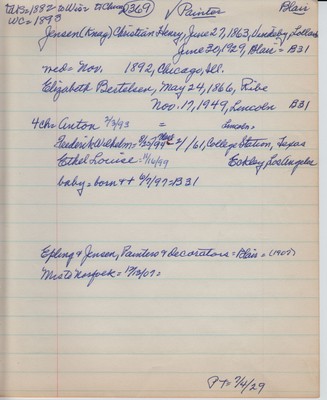 1882 to Wisc to (369) ✓ Painter Blair
WC = 1893
Jensen (Knag) Christian Henry, June 27, 1863, Vindeby, Lolland
June 30, 1929, Blair = B31
med = Nov. 1892, Chicago, Ill.
Elizabeth Bertelsen, May 24, 1866, Ribe
Nov. 17, 1949, Lincoln B31
4ch Anton 2/3/93 = Lincoln,
Frederik Wilhelm = 8/25/94 = 2/1/61, College Station, Texas
Ethel Louise = 1/10/99 Eckley, Los Angeles
baby = born + 6/7/97 = B31
Epling & Jensen, Painters & Decorators = Blair = (1907)
Mrs to Norfolk = 1907 =
PT = 7/4/29